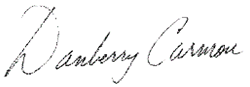 Danberry Carmon